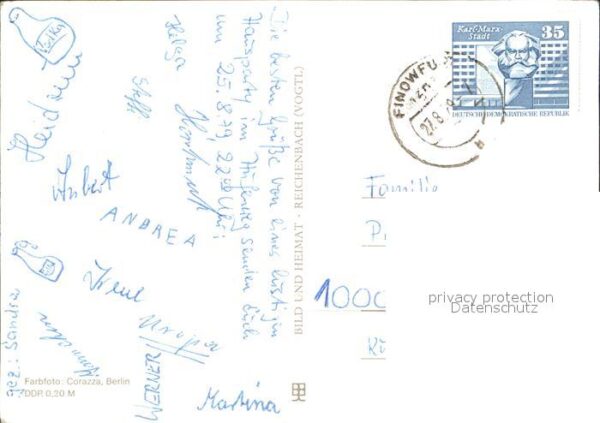 Die besten Grüße von einer lustigen
Hausparty im Hufenweg senden Euch
um 25.8.79, 22⁰⁰ Uhr:
Helga
Steffi
Heidemi
Hubert
ANDREA
Irene
WERNER
Martina
gez.: Sandra
Farbfoto: Corazza, Berlin
DDR 0,20 M
BILD UND HEIMAT · REICHENBACH (VOGTL)
Karl-Marx-
Stadt
35
DEUTSCHE DEMOKRATISCHE REPUBLIK
FINOWFU
27.8
Familie
P
1000
privacy protection
Datenschutz